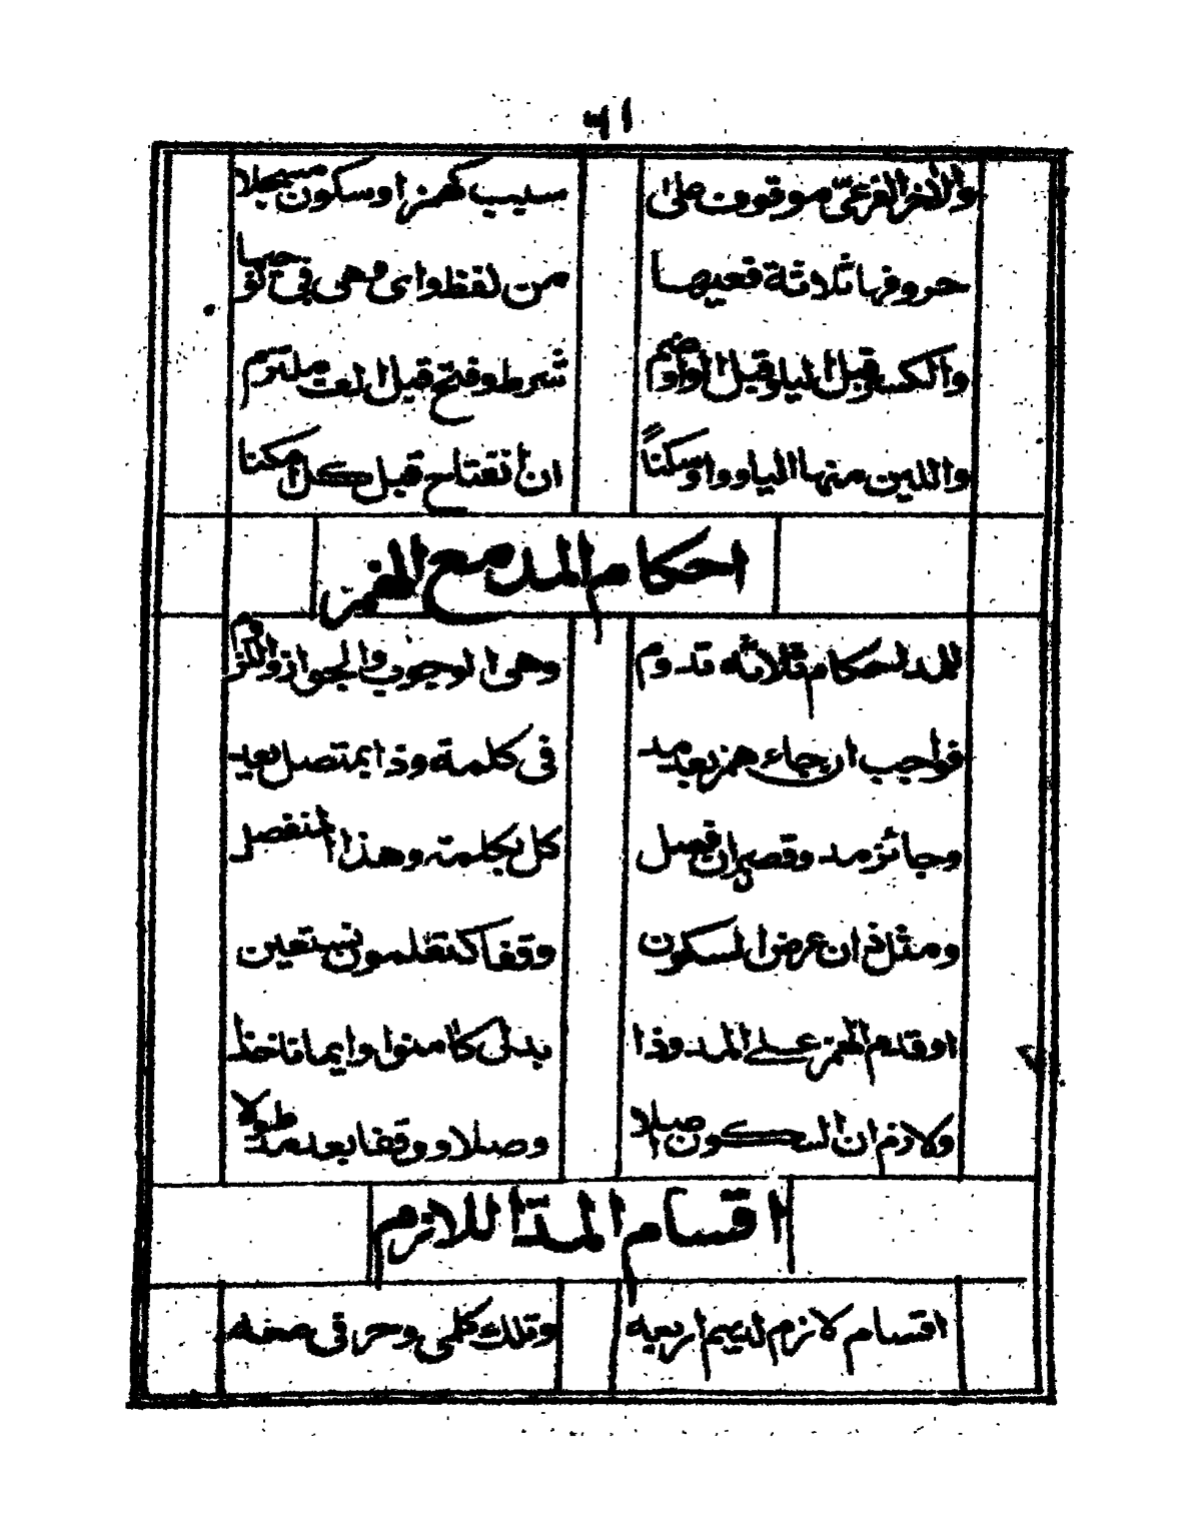 ٦١
والآخر الفرعيّ موقوف على سبب كهمز او سكون مسجلا
حروفها ثلاثة فعيها من لفظ واى وهى فى نوحيها
والكسر قبل اليا وقبل الواو ضم شرط وفتح قبل الف ملتزم
واللين منها اليا وواو سكناً ان انفتاح قبل كل امكنا
احكام المد مع الهمز
للمد احكام ثلاثه تدوم وهى الوجوب والجواز واللزوم
فواجب ان جاء همز بعد مد فى كلمة وذا بمتصل يعد
وجائز مد وقصر ان فصل كل بكلمة وهذا المنفصل
ومثل ذا ان عرض السكون وقفا كتعلمون نستعين
او قدم الهمز على المد وذا بدل كآمنوا وايمانا خذا
ولازم ان السكون اصلا وصلا ووقفا بعد مد طولا
اقسام المدّ اللازم
اقسام لازم لديهم اربعه وتلك كلمى وحرفى معه